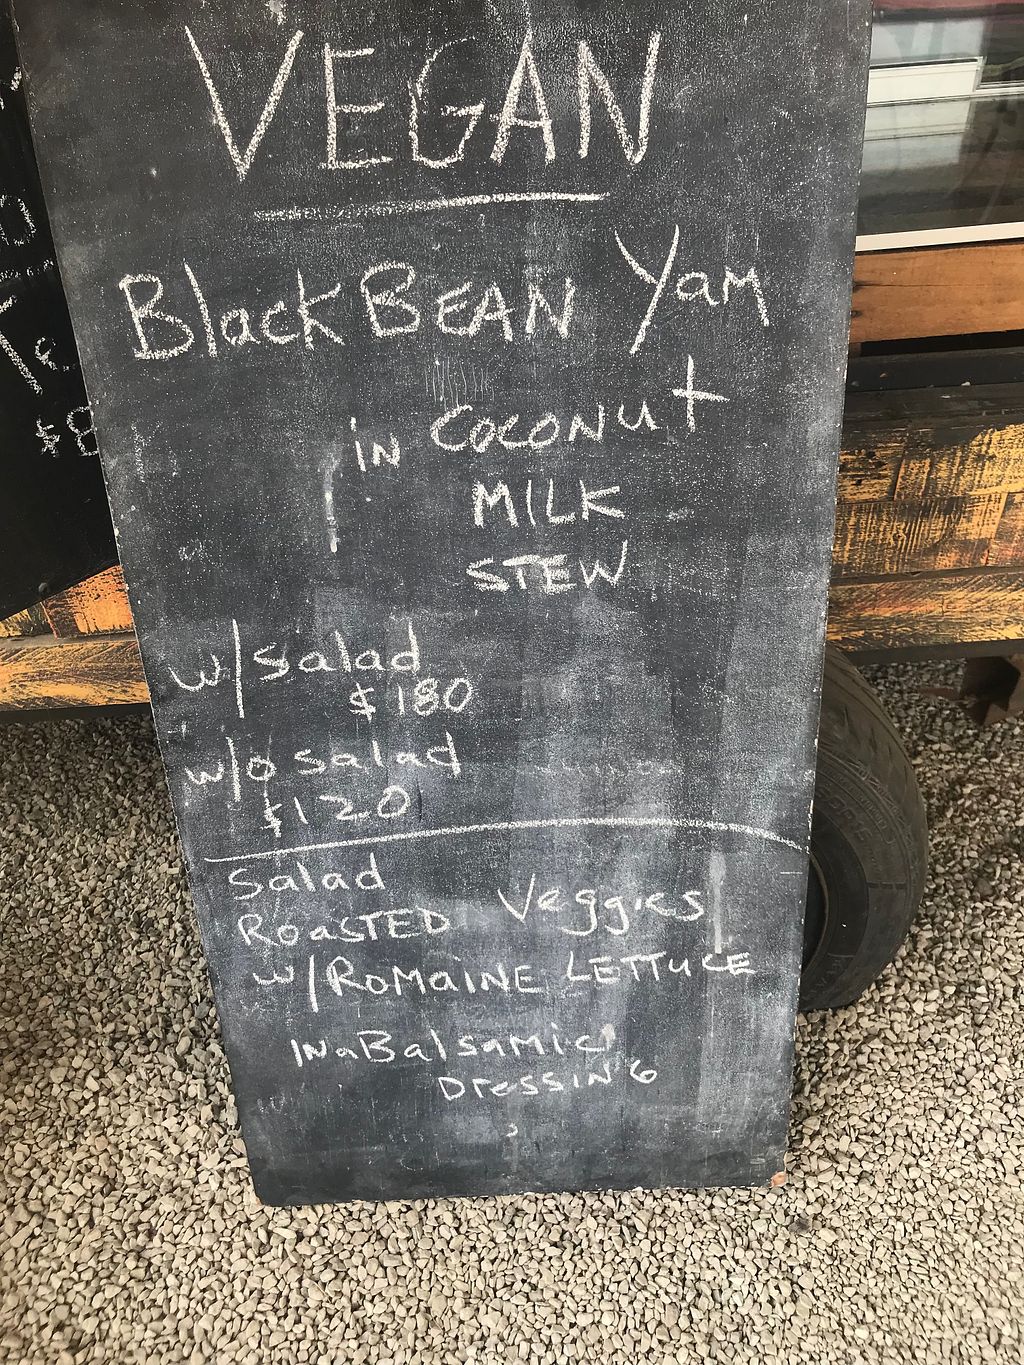 VEGAN
Black BEAN Yam
in Coconut
MILK
STEW
w/salad
$180
w/o salad
$120
Salad
ROaSTED Veggies
w/ROMaINE LETTUCE
IN a Balsamic
DressiNG